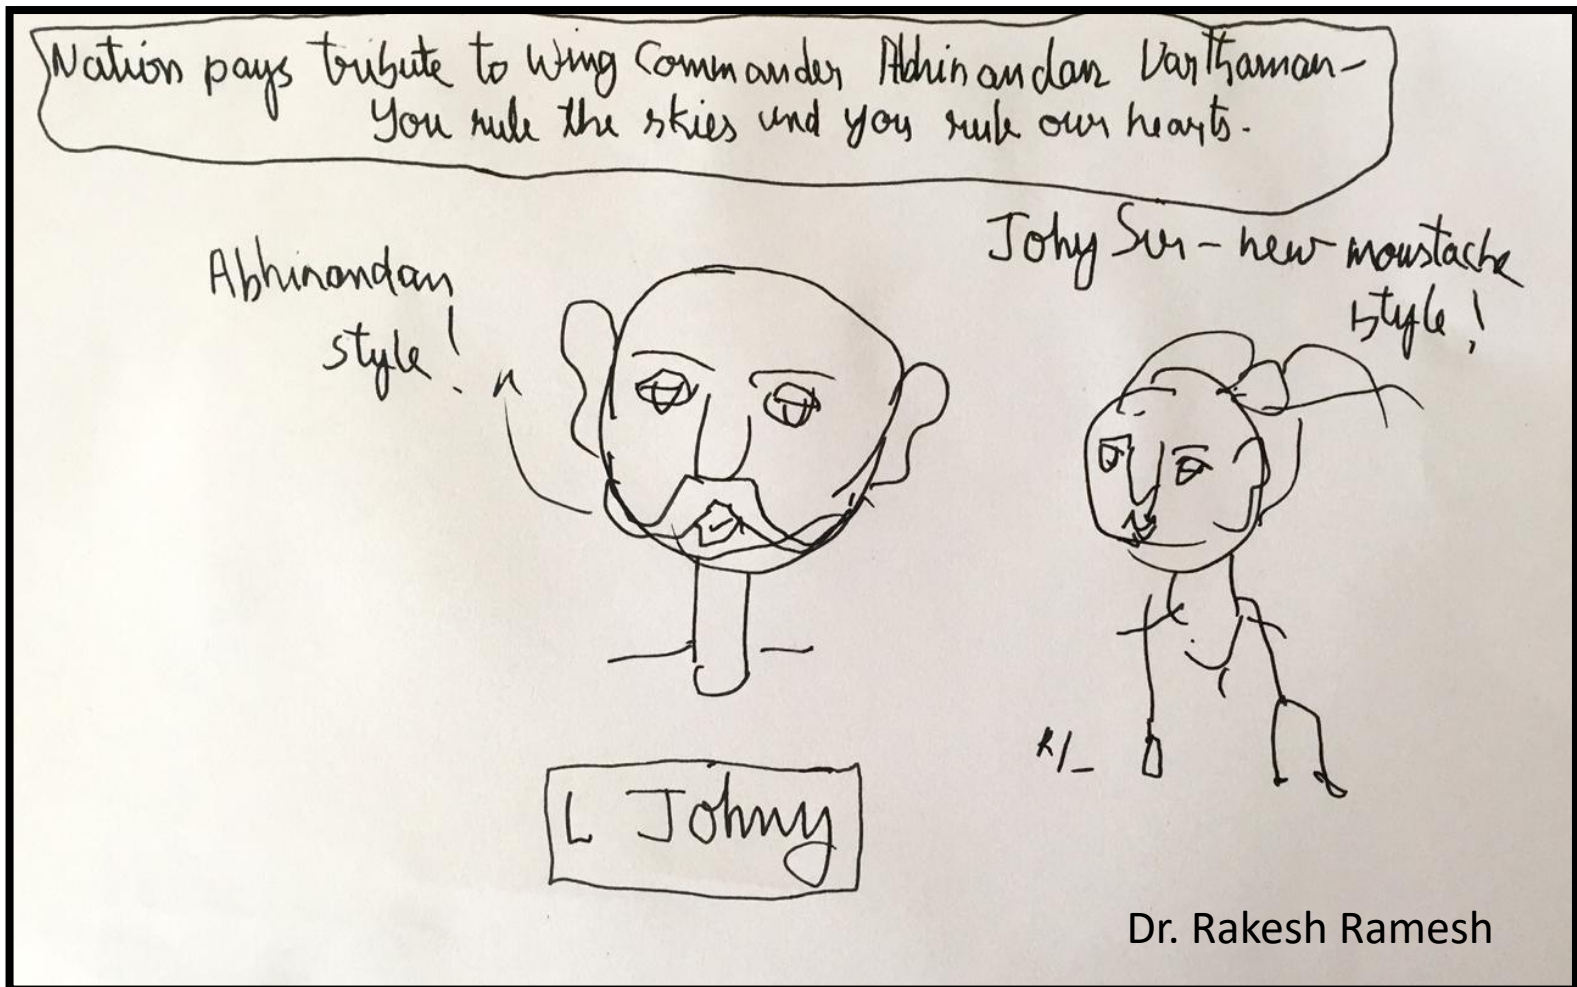 Nation pays tribute to Wing Commander Abhinandan Varthaman-
You rule the skies and you rule our hearts.
Abhinandan
style!
Johy Sir - new moustache
style!
R/_
L Johny
Dr. Rakesh Ramesh